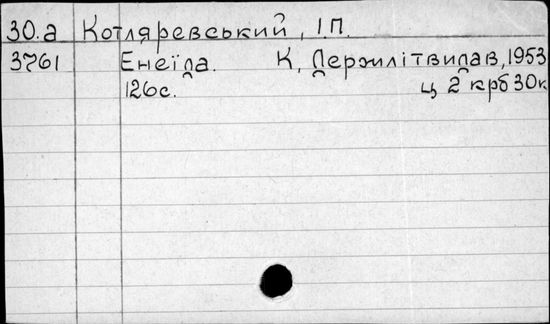 30.а Котляревський, І.П.
3761 Енеїда. К, Держлітвидав, 1953
126с. ц 2 крб 30к